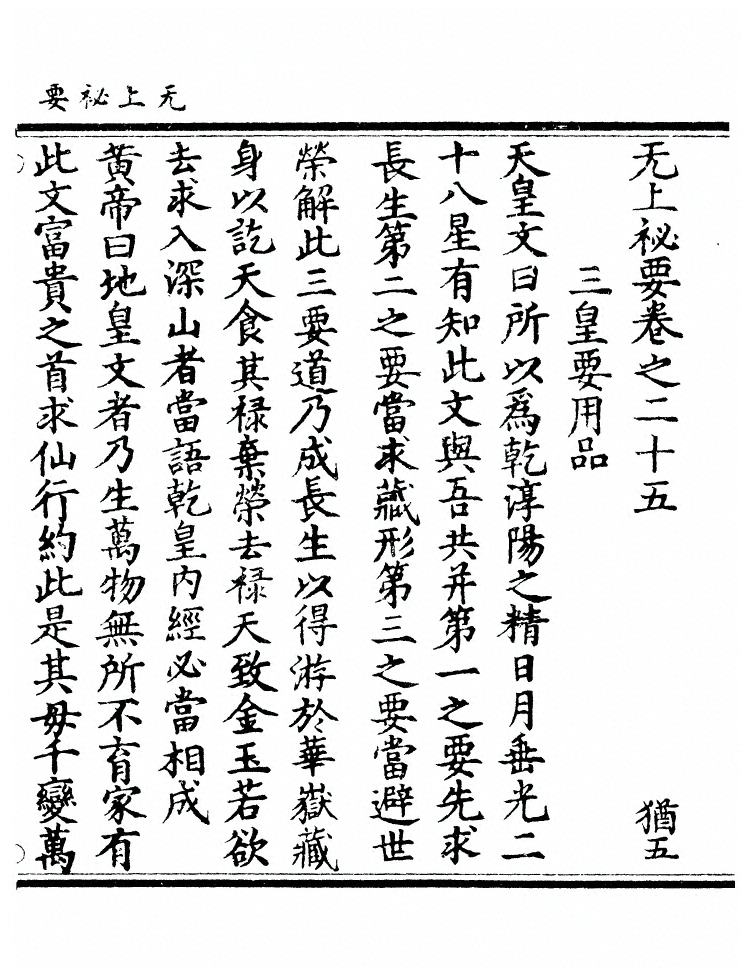 无上祕要
无上祕要卷之二十五
猶五
三皇要用品
天皇文曰所以爲乾淳陽之精日月垂光二
十八星有知此文與吾共并第一之要先求
長生第二之要當求藏形第三之要當避世
榮解此三要道乃成長生以得游於華嶽藏
身以訖天食其禄棄榮去禄天致金玉若欲
去求入深山者當語乾皇内經必當相成
黄帝曰地皇文者乃生萬物無所不育家有
此文富貴之首求仙行約此是其毋千變萬